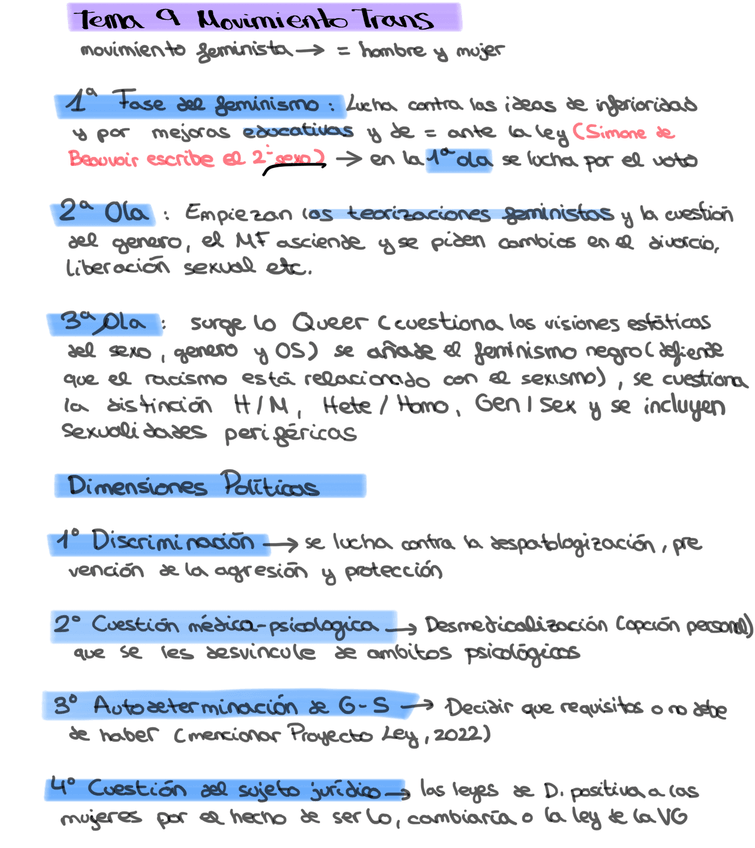 Tema 9 Movimiento Trans
movimiento feminista → = hombre y mujer
1ª Fase del feminismo : Lucha contra las ideas de inferioridad
y por mejoras educativas y de = ante la ley (Simone de
Beauvoir escribe el 2º sexo) → en la 1ª ola se lucha por el voto
2ª Ola : Empiezan las teorizaciones feministas y la cuestión
del genero, el MF asciende y se piden cambios en el divorcio,
liberación sexual etc.
3ª Ola : surge lo Queer (cuestiona las visiones estáticas
del sexo, genero y OS) se añade el feminismo negro (defiende
que el racismo está relacionado con el sexismo), se cuestiona
la distinción H/M, Hete/Homo, Gen/Sex y se incluyen
sexualidades periféricas
Dimensiones Políticas
1º Discriminación → se lucha contra la despatologización, pre
vención de la agresión y protección
2º Cuestión médica-psicologica → Desmedicalización (opción personal)
que se les desvincule de ambitos psicológicos
3º Autodeterminación de G-S → Decidir que requisitos o no debe
de haber (mencionar Proyecto Ley, 2022)
4º Cuestión del sujeto jurídico → las leyes de D. positiva a las
mujeres por el hecho de serlo, cambiaría o la ley de la VG